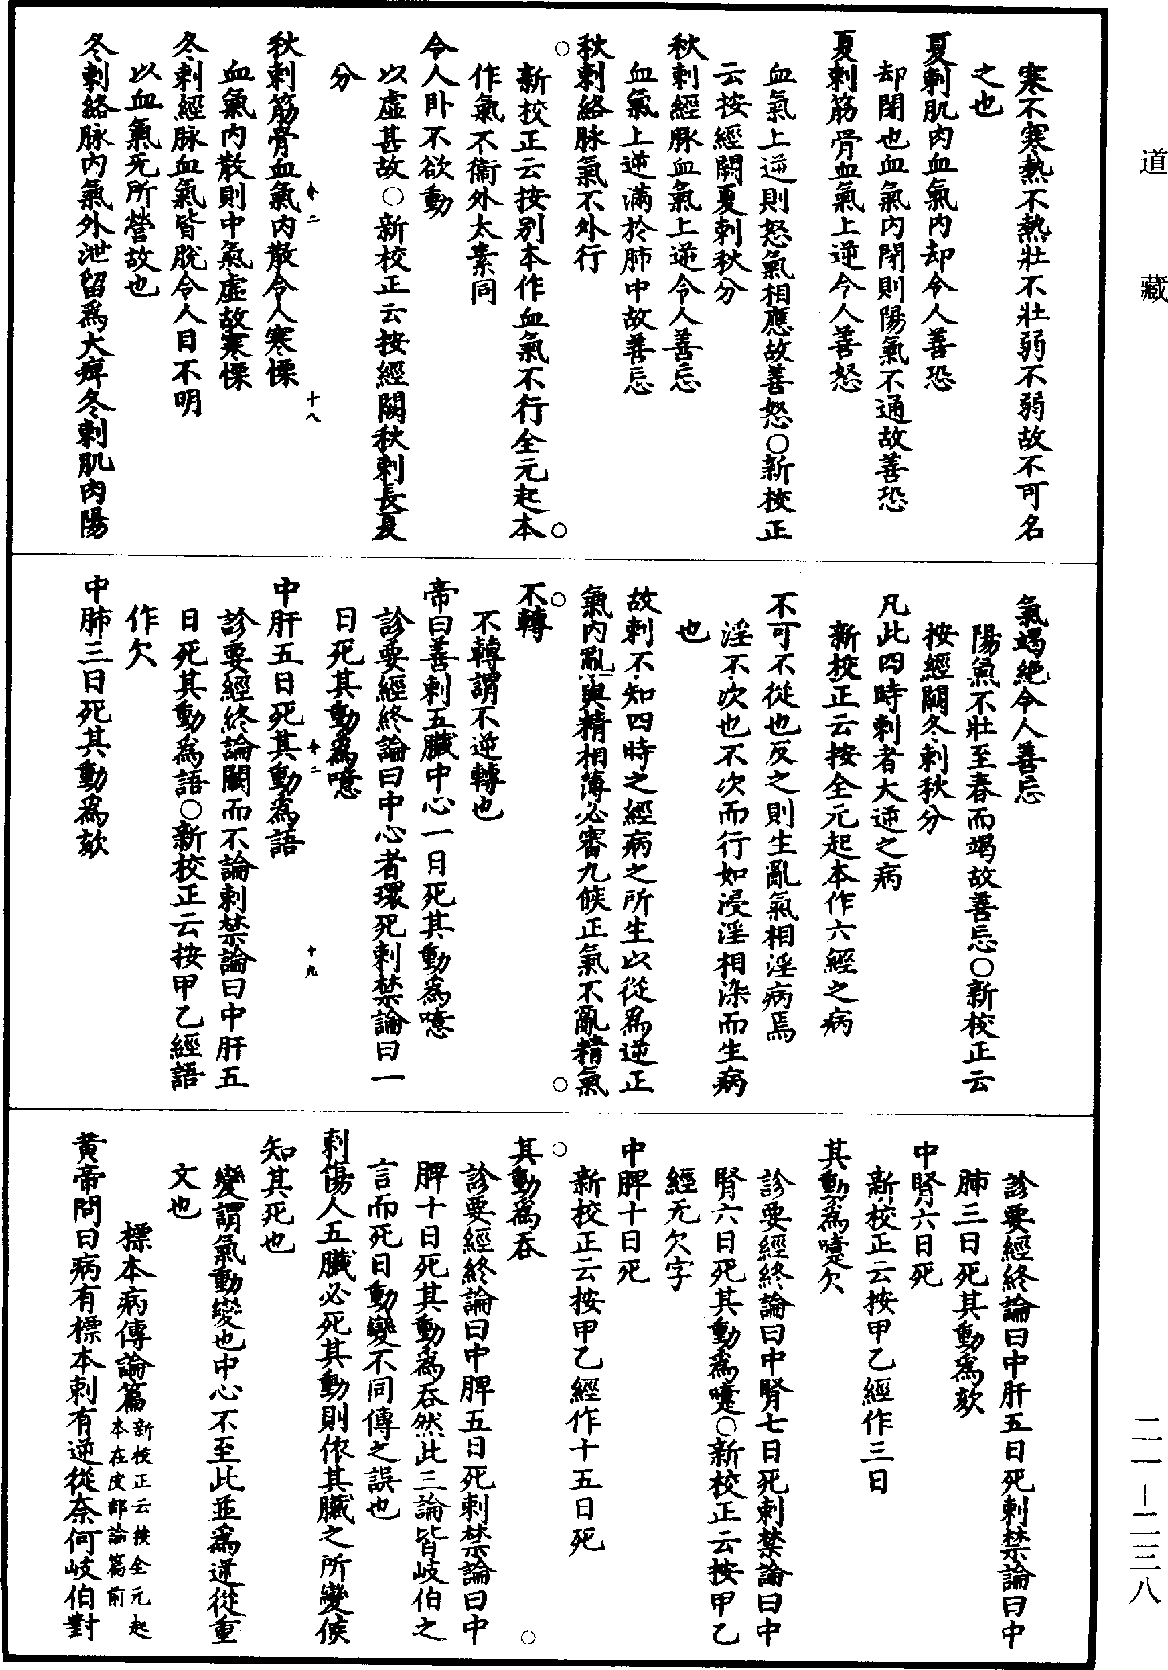 道藏
寒不寒熱不熱壯不壯弱不弱故不可名
之也
夏刺肌肉血氣內却令人善恐
却閉也血氣內閉則陽氣不通故善恐
夏刺筋骨血氣上逆令人善怒
血氣上逆則怒氣相應故善怒○新校正
云按經闕夏刺秋分
秋刺經脉血氣上逆令人善忘
血氣上逆滿於肺中故善忘
秋刺絡脉氣不外行
新校正云按別本作血氣不行全元起本
作氣不衞外太素同
令人卧不欲動
以虛甚故○新校正云按經闕秋刺長夏
分
秋刺筋骨血氣內散令人寒慄
十八
血氣內散則中氣虛故寒慄
冬刺經脉血氣皆脫令人目不明
以血氣无所營故也
冬刺絡脉內氣外泄留爲大痺冬刺肌肉陽
氣竭絕令人善忘
陽氣不壯至春而竭故善忘○新校正云
按經闕冬刺秋分
凡此四時刺者大逆之病
新校正云按全元起本作六經之病
不可不從也反之則生亂氣相淫病焉
淫不次也不次而行如浸淫相染而生病
也
故刺不知四時之經病之所生以從爲逆正
氣內亂與精相薄必審九候正氣不亂精氣
不轉
不轉謂不逆轉也
帝曰善刺五臟中心一日死其動爲噫
診要經終論曰中心者環死刺禁論曰一
日死其動爲噫
十九
中肝五日死其動爲語
診要經終論闕而不論刺禁論曰中肝五
日死其動爲語○新校正云按甲乙經語
作欠
中肺三日死其動爲欬
診要經終論曰中肝五日死刺禁論曰中
肺三日死其動爲欬
中腎六日死
新校正云按甲乙經作三日
其動爲嚏欠
診要經終論曰中腎七日死刺禁論曰中
腎六日死其動爲嚏○新校正云按甲乙
經无欠字
中脾十日死
新校正云按甲乙經作十五日死
其動爲吞
診要經終論曰中脾五日死刺禁論曰中
脾十日死其動爲吞然此三論皆岐伯之
言而死日動變不同傳之誤也
刺傷人五臟必死其動則依其臟之所變候
知其死也
變謂氣動變也中心不至此並爲逆從重
文也
標本病傳論篇新校正云按全元起本在皮部論篇前
黃帝問曰病有標本刺有逆從奈何岐伯對
二一—二三八